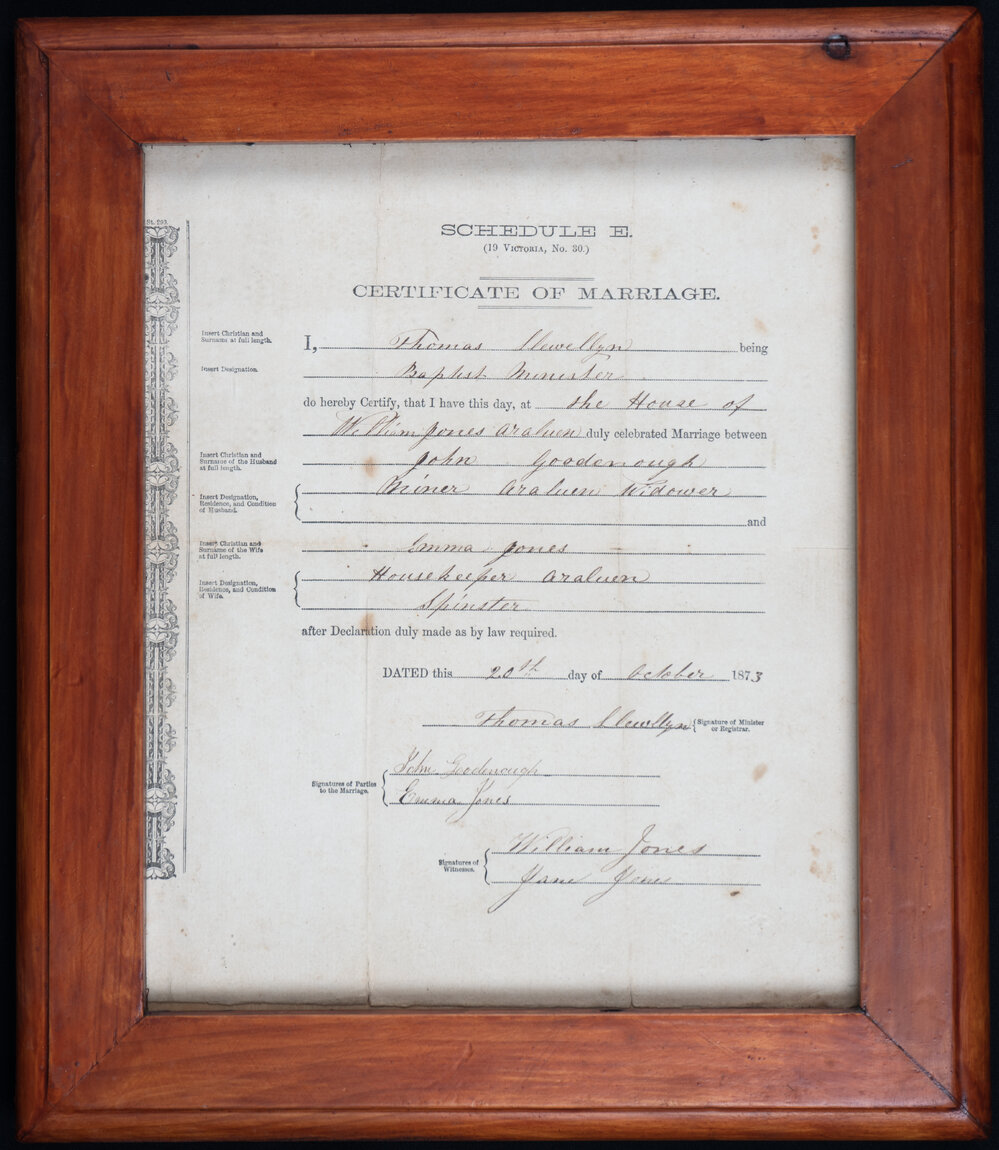 St. 293.
SCHEDULE E.
(19 VICTORIA, No. 30.)
CERTIFICATE OF MARRIAGE.
Insert Christian and
Surname at full length.
I, Thomas Llewellyn being
Insert Designation.
Baptist Minister
do hereby Certify, that I have this day, at the House of
William Jones Araluen duly celebrated Marriage between
Insert Christian and
Surname of the Husband
at full length.
John Goodenough
Insert Designation,
Residence, and Condition
of Husband.
Miner Araluen Widower
and
Insert Christian and
Surname of the Wife
at full length.
Emma Jones
Insert Designation,
Residence, and Condition
of Wife.
Housekeeper Araluen
Spinster
after Declaration duly made as by law required.
DATED this 20th day of October 1873
Thomas Llewellyn Signature of Minister
or Registrar.
Signatures of Parties
to the Marriage.
John Goodenough
Emma Jones
Signatures of
Witnesses.
William Jones
Jane Jones